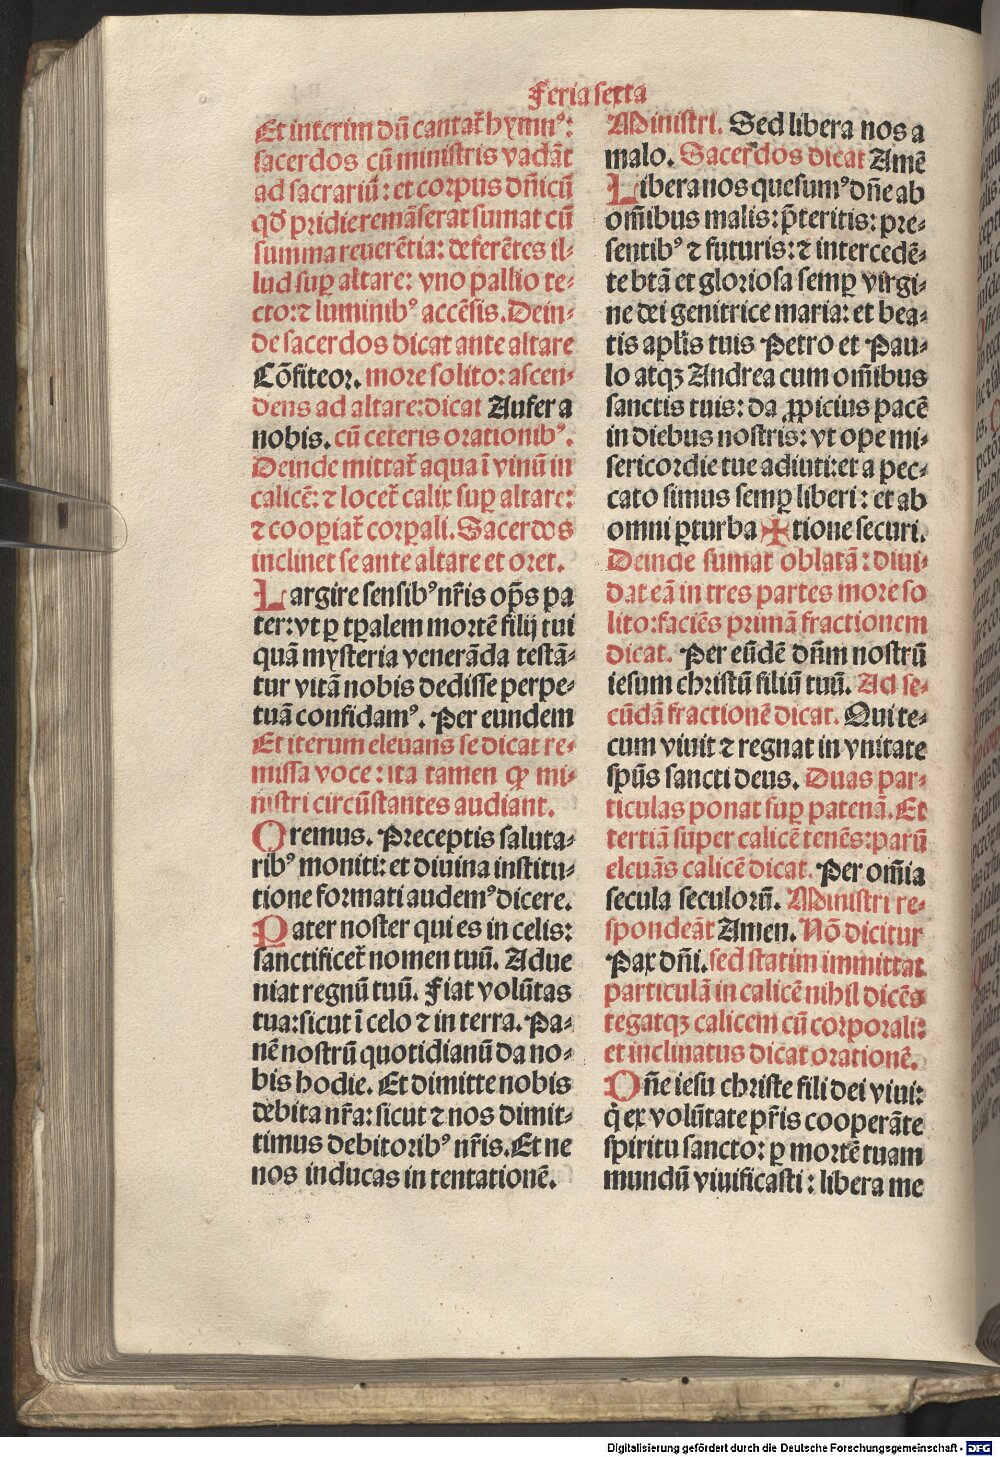 Feria sexta
Et interim dū cantat᷑ hymnꝰ:
sacerdos cū ministris vadāt
ad sacrariū: et corpus dn̄icū
qđ pridie remāserat sumat cū
summa reuerētia: deferētes il-
lud suꝑ altare: vno pallio te-
cto: ⁊ luminibꝰ accēsis. Dein-
de sacerdos dicat ante altare
Cōfiteor. more solito: ascen-
dens ad altare: dicat Aufer a
nobis. cū ceteris orationibꝰ.
Deinde mittat᷑ aqua ī vinū in
calicē: ⁊ locet᷑ calix suꝑ altare:
⁊ cooꝑiat᷑ corꝑali. Sacerdos
inclinet se ante altare et oret.
Largire sensibꝰ nr̄is op̄s pa
ter: vt ꝑ tꝑalem mortē filij tui
quā mysteria venerāda testā-
tur vitā nobis dedisse perpe-
tuā confidamꝰ. Per eundem
Et iterum eleuans se dicat re-
missa voce: ita tamen ꝙ mi-
nistri circūstantes audiant.
Oremus. Preceptis saluta-
ribꝰ moniti: et diuina institu-
tione formati audemꝰ dicere.
Pater noster qui es in celis:
sanctificet᷑ nomen tuū. Adue
niat regnū tuū. Fiat volūtas
tua: sicut ī celo ⁊ in terra. Pa-
nē nostrū quotidianū da no-
bis hodie. Et dimitte nobis
debita nr̄a: sicut ⁊ nos dimit-
timus debitoribꝰ nr̄is. Et ne
nos inducas in tentationē.
Ministri. Sed libera nos a
malo. Sacerdos dicat Amē
Libera nos quesumꝰ dn̄e ab
om̄ibus malis: p̄teritis: pre-
sentibꝰ ⁊ futuris: ⁊ intercedē-
te btā et gloriosa semꝑ virgi-
ne dei genitrice maria: et bea-
tis apl̄is tuis Petro et Pau-
lo atqꝫ Andrea cum om̄ibus
sanctis tuis: da ꝓpicius pacē
in diebus nostris: vt ope mi-
sericordie tue adiuti: et a pec-
cato simus semꝑ liberi: et ab
omni ꝑturba ✠ tione securi.
Deinde sumat oblatā: diui-
dat eā in tres partes more so
lito: faciēs primā fractionem
dicat. Per eūdē dn̄m nostrū
iesum christū filiū tuū. Ad se-
cūdā fractionē dicat. Qui te-
cum viuit ⁊ regnat in vnitate
spūs sancti deus. Duas par-
ticulas ponat suꝑ patenā. Et
tertiā super calicē tenēs: parū
eleuās calicē dicat. Per om̄ia
secula seculorū. Ministri re-
spondeāt Amen. Nō dicitur
Pax dn̄i. sed statim immittat
particulā in calicē nihil dicēs
tegatqꝫ calicem cū corporali:
et inclinatus dicat orationē.
Dn̄e iesu christe fili dei viui:
q̇ ex volūtate pr̄is cooperāte
spiritu sancto: ꝑ mortē tuam
mundū viuificasti: libera me
Digitalisierung gefördert durch die Deutsche Forschungsgemeinschaft - DFG